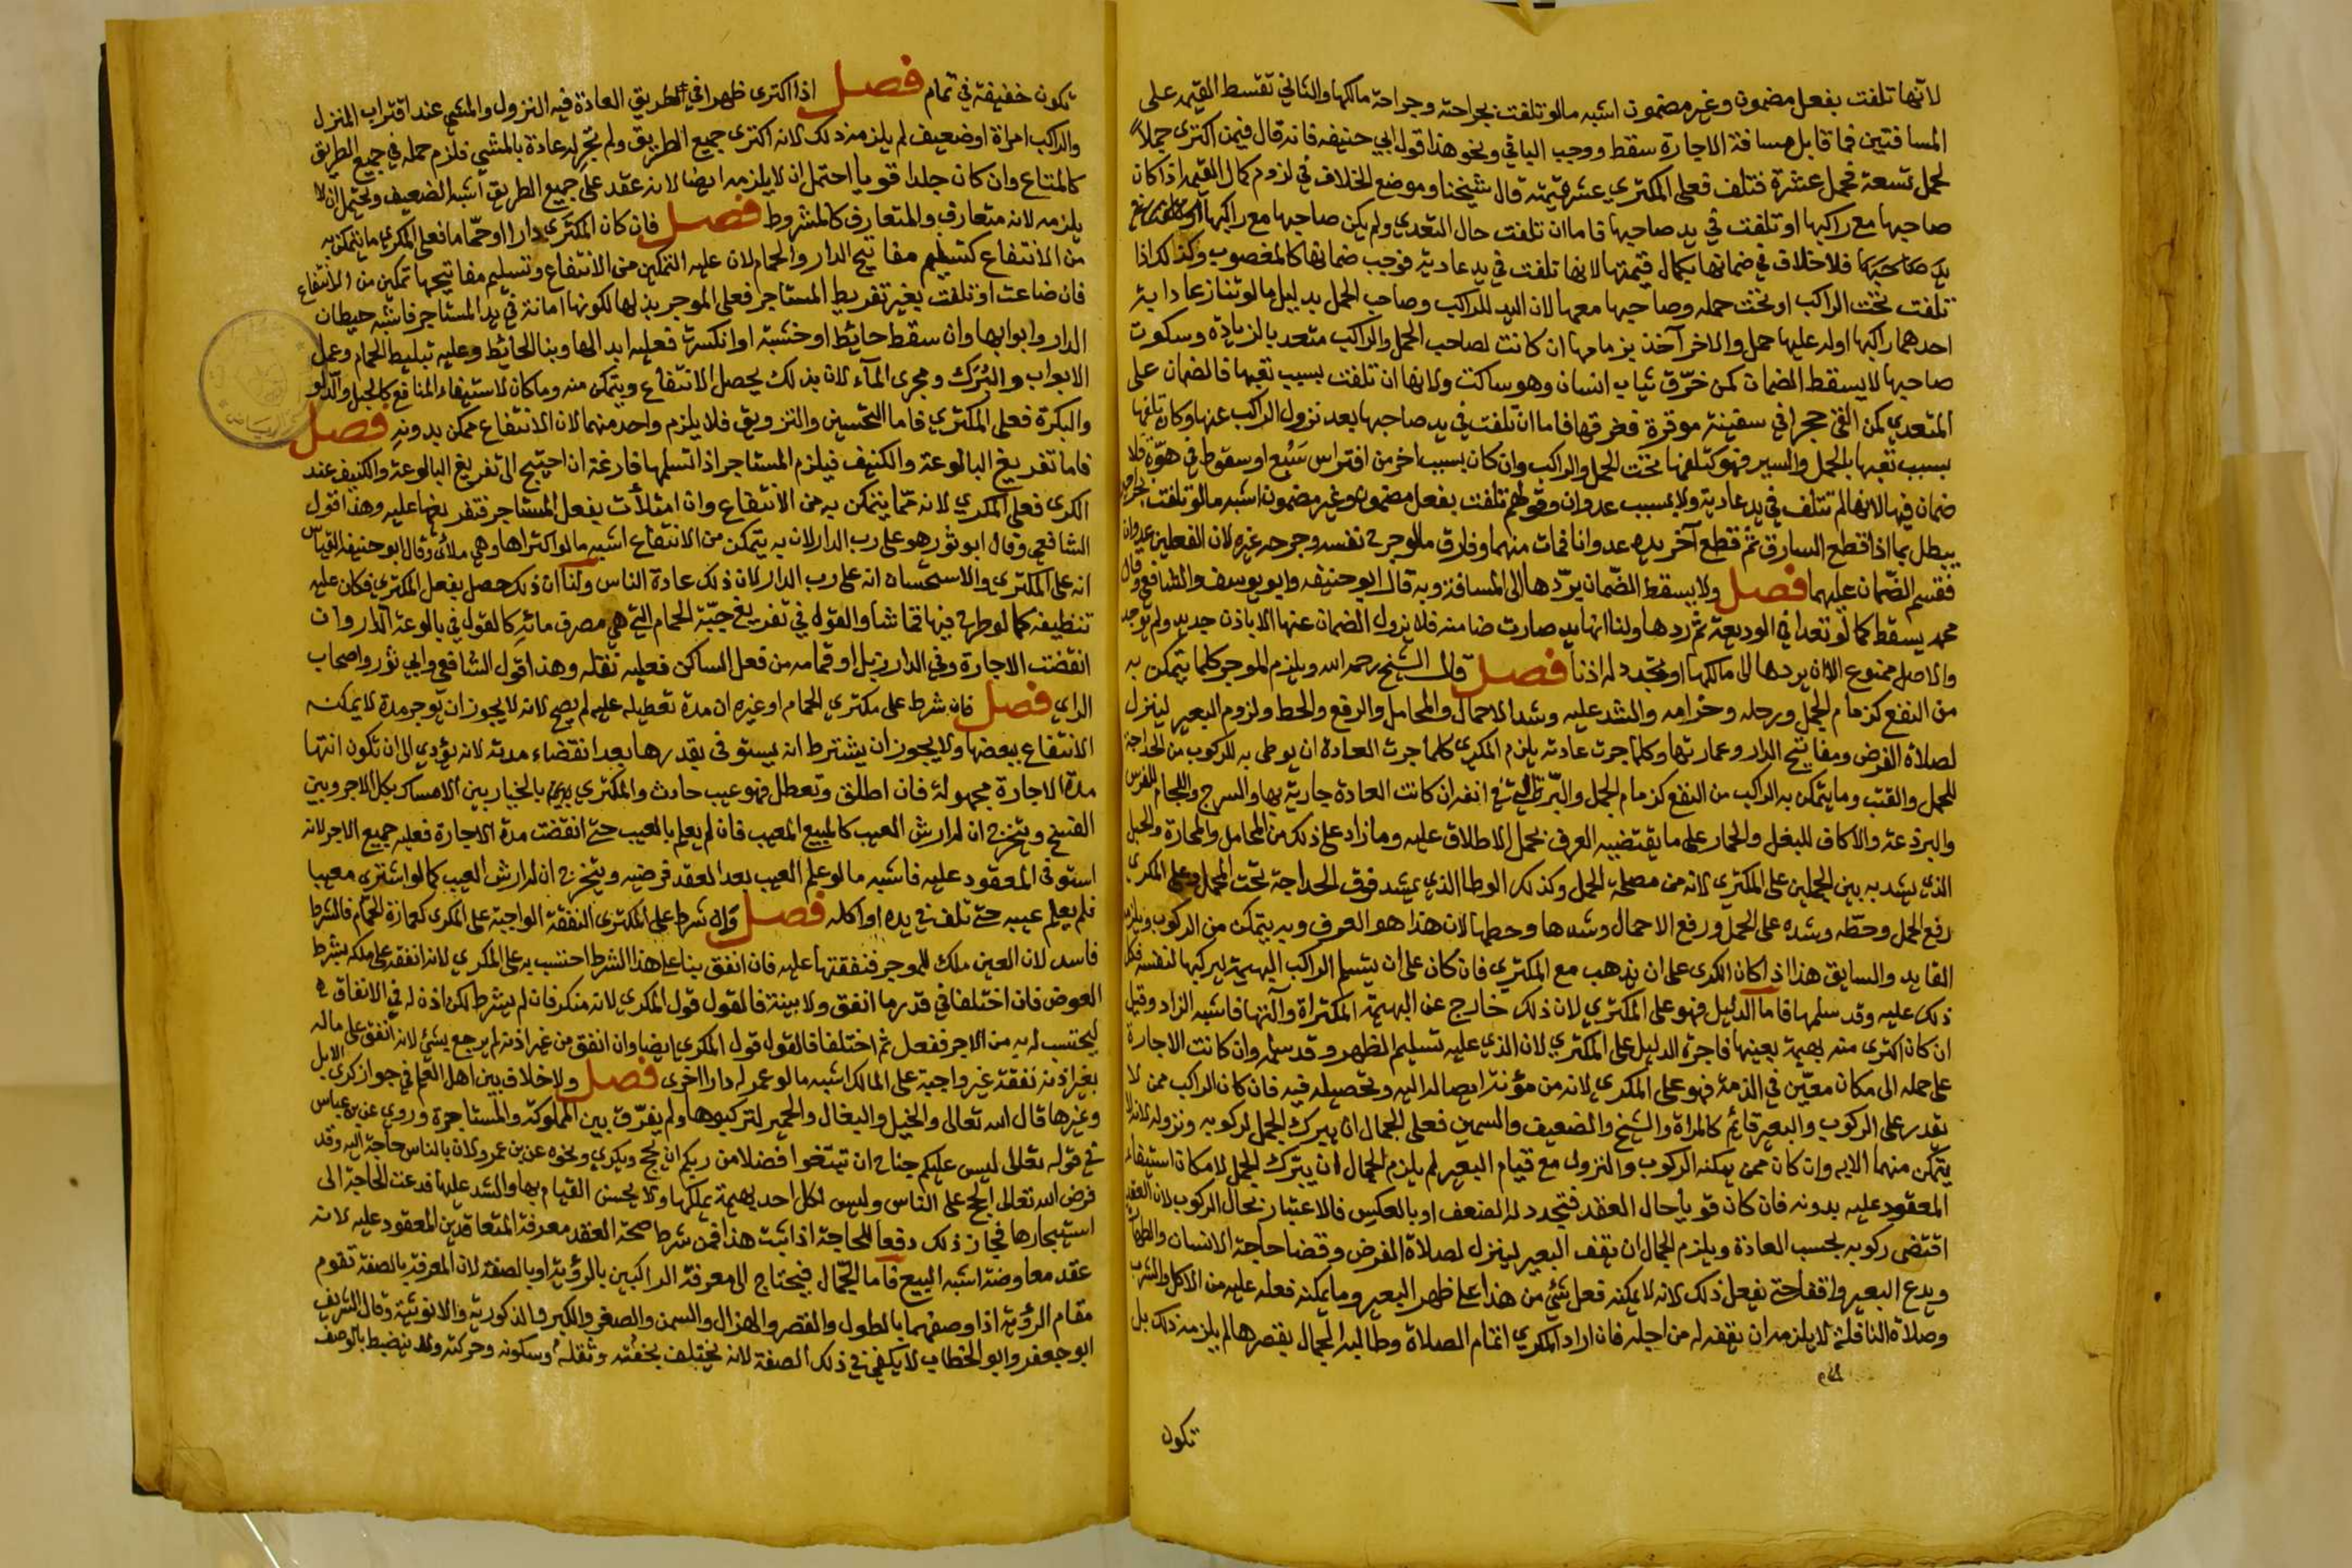 لأنها تلفت بفعل مضمون وغير مضمون اشبه مالو تلفت بجراحته وجراحة مالكها والثاني تقسط القيمة على
المسافتين فما قابل مسافة الاجارة سقط ووجب الباقي ونحو هذا قول ابي حنيفة فانه قال فيمن اكترى جملاً
لحمل تسعة فحمل عشرة فتلف فعلى المكتري عشر قيمته قال شيخنا وموضع الخلاف في لزوم كمال القيمة اذا كان
صاحبها مع راكبها او تلفت في يد صاحبها فاما ان تلفت حال التعدي ولم يكن صاحبها مع راكبها
يد صاحبها فلا خلاف في ضمانها بكمال قيمتها لانها تلفت في يد عادية فوجب ضمانها كالمغصوب وكذلك اذا
تلفت تحت الراكب او تحت حمله وصاحبها معها لان اليد للراكب وصاحب الحمل بدليل مالو تنازعا دابة
احدهما راكبها اوله عليها حمل والاخر آخذ بزمامها ان كانت لصاحب الحمل والراكب متعد بالزيادة وسكوت
صاحبها لا يسقط الضمان كمن خرّق ثياب انسان وهو ساكت ولانها ان تلفت بسبب تعبها فالضمان على
المتعدي كمن القى حجرا في سفينة موقرة فغرقها فاما ان تلفت في يد صاحبها بعد نزول الراكب عنها وكان تلفها
بسبب تعبها بالحمل والسير فهو كتلفها تحت الحمل والراكب وان كان بسبب اخر من افتراس سَبُع او سقوط في هوّة فلا
ضمان فيها لانها لم تتلف في يد عادية ولا بسبب عدوان وقولهم تلفت بفعل مضمون وغير مضمون اشبه مالو تلفت بجراحتين
يبطل بما اذا قطع السارق ثم قطع آخر يده عدوانا فمات منهما وفارق مالو جرح نفسه وجرحه غيره لان الفعلين عدوان
فقسم الضمان عليهما فصل ولا يسقط الضمان بردّها الى المسافة وبه قال ابو حنيفة وابو يوسف والشافعي وقال
محمد يسقط كما لو تعدا في الوديعة ثم ردها ولنا انها يد صارت ضامنة فلا يزول الضمان عنها الا باذن جديد ولم توجد
والاصل ممنوع الا ان يردها الى مالكها او يجدد له اذنا فصل قال الشيخ رحمه الله ويلزم الموجر كلما يتمكن به
من النفع كزمام الجمل ورحله وحزامه والشد عليه وشد الاحمال والمحامل والرفع والحط ولزوم البعير لينزل
لصلاة الفرض ومفاتيح الدار وعمارتها وكلما جرت عادته يلزم المكري كلما جرت العادة ان يوطى به للركوب من الحداجة
للجمل والقتب وما يتمكن به الراكب من النفع كزمام الجمل والبرة التي في انفه ان كانت العادة جارية بها والسرج واللجام للفرس
والبرذعة والاكاف للبغل والحمار على ما يقتضيه العرف فحمل الاطلاق عليه وما زاد على ذلك من المحامل والمحارة والحبل
الذي يشد به بين المحملين على المكتري لانه من مصلحة المحمل وكذلك الوطا الذي يشد فوق الحداجة تحت المحمل وعلى المكري
رفع الحمل وحطّه وشده على الجمل ورفع الاحمال وشدها وحطها لان هذا هو العرف وبه يتمكن من الركوب ويلزمه
القايد والسايق هذا اذا كان الكرى على ان يذهب مع المكتري فان كان على ان يتسلم الراكب البهيمة ليركبها لنفسه فكل
ذلك عليه وقد سلمها فاما الدليل فهو على المكتري لان ذلك خارج عن البهيمة المكتراة وآلتها فاشبه الزاد وقيل
ان كان اكترى منه بهيمة بعينها فاجرة الدليل على المكتري لان الذي عليه تسليم الظهر وقد سلمه وان كانت الاجارة
على حمله الى مكان معيّن في الذمة فهو على المكري لانه من مؤنة ايصاله اليه وتحصيله فيه فان كان الراكب ممن لا
يقدر على الركوب والبعير قائم كالمراة والشيخ والضعيف والسمين فعلى الجمال ان يبرك الجمل لركوبه ونزوله لانه لا
يتمكن منهما الا به وان كان ممن يمكنه الركوب والنزول مع قيام البعير لم يلزم الجمال ان يبرك الجمل لامكان استيفاء
المعقود عليه بدونه فان كان قويا حال العقد فتجدد له الضعف او بالعكس فالاعتبار بحال الركوب لان العقد
اقتضى ركوبه بحسب العادة ويلزم الجمال ان يقف البعير لينزل لصلاة الفرض وقضا حاجة الانسان والطهارة
ويدع البعير واقفا حتى يفعل ذلك لانه لا يمكنه فعل شئ من هذا على ظهر البعير وما يمكنه فعله عليه من الاكل والشرب
وصلاة النافلة لا يلزمه ان يقفه له من اجله فان اراد المكتري اتمام الصلاة وطالبه الجمال بقصرها لم يلزمه ذلك بل
تكون
تكون خفيفة في تمام فصل اذا اكترى ظهرا في طريق العادة فيه النزول والمشي عند اقتراب المنزل
والراكب امراة او ضعيف لم يلزمه ذلك لانه اكترى جميع الطريق ولم تجر له عادة بالمشي فلزم حمله في جميع الطريق
كالمتاع وان كان جلدا قويا احتمل ان لا يلزمه ايضا لانه عقد على جميع الطريق اشبه الضعيف ويحتمل ان لا
يلزمه لانه متعارف والمتعارف كالمشروط فصل فان كان المكترى دارا او حمّاما فعلى المكري ما يتمكن به
من الانتفاع كتسليم مفاتيح الدار والحمام لان عليه التمكين من الانتفاع وتسليم مفاتيحها تمكين من الانتفاع
فان ضاعت او تلفت بغير تفريط المستاجر فعلى الموجر بدلها لكونها امانة في يد المستاجر فاشبه حيطان
الدار وابوابها وان سقط حائط او خشبة او انكسرت فعليه ابدالها وبنا الحائط وعليه تبليط الحمام وعمل
الابواب والبُرَك ومجرى المآء لان بذلك يحصل الانتفاع ويتمكن منه وما كان لاستيفاء المنافع كالحبل والدلو
والبكرة فعلى المكتري فاما التحسين والتزويق فلا يلزم واحد منهما لان الانتفاع ممكن بدونه فصل
فاما تفريغ البالوعة والكنيف فيلزم المستاجر اذا تسلمها فارغة ان احتيج الى تفريغ البالوعة والكنيف عند
الكرى فعلى المكري لانه مما يتمكن به من الانتفاع وان امتلأت بفعل المستاجر فتفريغها عليه وهذا قول
الشافعي وقال ابو ثور هو على رب الدار لان به يتمكن من الانتفاع اشبه مالو اكتراها وهي ملأى وقال ابو حنيفة القياس
انه على المكتري والاستحسان انه على رب الدار لان ذلك عادة الناس ولنا ان ذلك حصل بفعل المكتري فكان عليه
تنظيفه كما لو طرح فيها قماشا والقول في تفريغ جيّة الحمام التي هي مصرف مائه كالقول في بالوعة الدار وان
انقضت الاجارة وفي الدار زبل او قمامة من فعل الساكن فعليه نقله وهذا قول الشافعي وابي ثور واصحاب
الراي فصل فان شرط على مكتري الحمام او غيره ان مدة تعطيله عليه لم يصح لانه لا يجوز ان يوجر مدة لا يمكنه
الانتفاع ببعضها ولا يجوز ان يشترط انه يستوفى بقدرها بعد انقضاء مدته لانه يؤدي الى ان تكون انتها
مدة الاجارة مجهولة فان اطلق وتعطل فهو عيب حادث والمكتري بالخيار بين الامساك بكل الاجر وبين
الفسخ ويتخرج ان له ارش العيب كالمبيع المعيب فان لم يعلم بالعيب حتى انقضت مدة الاجارة فعليه جميع الاجر لانه
استوفى المعقود عليه فاشبه مالو علم العيب بعد العقد فرضيه ويتخرج ان له ارش العيب كما لو اشترى معيبا
فلم يعلم عيبه حتى تلف في يده او اكله فصل وان شرط على المكتري النفقة الواجبة على المكري كعمارة الحمام فالشرط
فاسد لان العين ملك للموجر فنفقتها عليه فان انفق بناء على هذا الشرط احتسب به على المكري لانه انفقه على ملكه بشرط
العوض فان اختلفا في قدر ما انفق ولا بينة فالقول قول المكري لانه منكر فان لم يشرط لكن اذن له في الانفاق
ليحتسب له به من الاجر ففعل ثم اختلفا فالقول قول المكري ايضا وان انفق من غير اذنه لم يرجع بشئ لانه انفق على ماله
بغير اذنه نفقة غير واجبة على المالك اشبه مالو عمر له دارا اخرى فصل ولا خلاف بين اهل العلم في جواز كرى الابل
وغيرها قال الله تعالى والخيل والبغال والحمير لتركبوها ولم يفرّق بين المملوكة والمستاجرة وروي عن ابن عباس
في قوله تعالى ليس عليكم جناح ان تبتغوا فضلا من ربكم ان يحج ويكري ونحوه عن بن عمر ولان بالناس حاجة اليه وقد
فرض الله تعالى الحج على الناس وليس لكل احد بهيمة يملكها ولا يحسن القيام بها والشد عليها فدعت الحاجة الى
استيجارها فجاز ذلك دفعا للحاجة اذا ثبت هذا فمن شرط صحة العقد معرفة المتعاقدين المعقود عليه لانه
عقد معاوضة اشبه البيع فاما الجّمال فيحتاج الى معرفة الراكبين بالرؤية او بالصفة لان المعرفة بالصفة تقوم
مقام الرؤية اذا وصفهما بالطول والقصر والهزال والسمن والصغر والكبر والذكورية والانوثية وقال الشريف
ابو جعفر وابو الخطاب لا يكفي في ذلك الصفة لانه يختلف بخفته وثقله وسكونه وحركته ولا ينضبط بالوصف